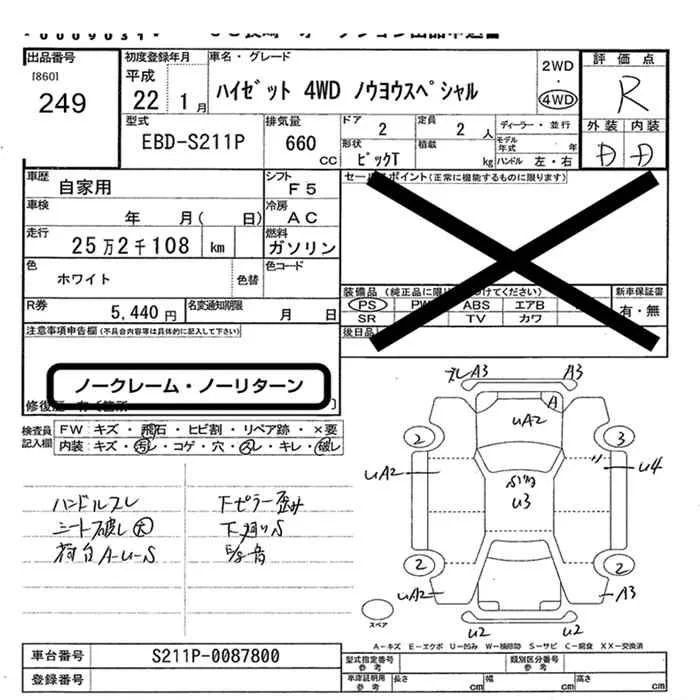 出品番号
[860]
249
初度登録年月
平成
22 1月
車名・グレード
ハイゼット 4WD ノウヨウスペシャル
2WD
・
4WD
評価点
R
外装 内装
D D
型式
EBD-S211P
排気量
660
CC
ドア
2
定員
2 人
ディーラー・並行
モデル年式 年
形状
ピックT
積載
kg
ハンドル 左・右
車歴
自家用
シフト
F5
セールスポイント(正常に機能するものに限ります)
車検
年 月( 日)
冷房
AC
走行
25万2千108 km
燃料
ガソリン
色
ホワイト
色替
色コード
装備品
PS PW ABS エアB
SR TV カワ
新車保証書
有・無
R券
5,440円
名変通知期限
月 日
後日品
注意事項申告欄(不具合内容等は具体的に記入して下さい)
ノークレーム・ノーリターン
検査員
記入欄
FW キズ・飛石・ヒビ割・リペア跡・×要
内装 キズ・汚レ・コゲ・穴・スレ・キレ・破レ
ハンドルスレ
シート破レ大
荷台A-U-S
下ピラー歪み
下廻りS
A3 A3
A
UA2
2 3
UA2 U4
U3
2 2
UA2 A3
U2 U2
スペア
A-キズ E-エクボ U-凹み W-補修跡 S-サビ C-腐食 XX-交換済
車台番号
S211P-0087800
登録番号
型式指定番号
参考
類別区分番号
参考
車庫証明用
参考
長さ cm
幅 cm
高さ cm